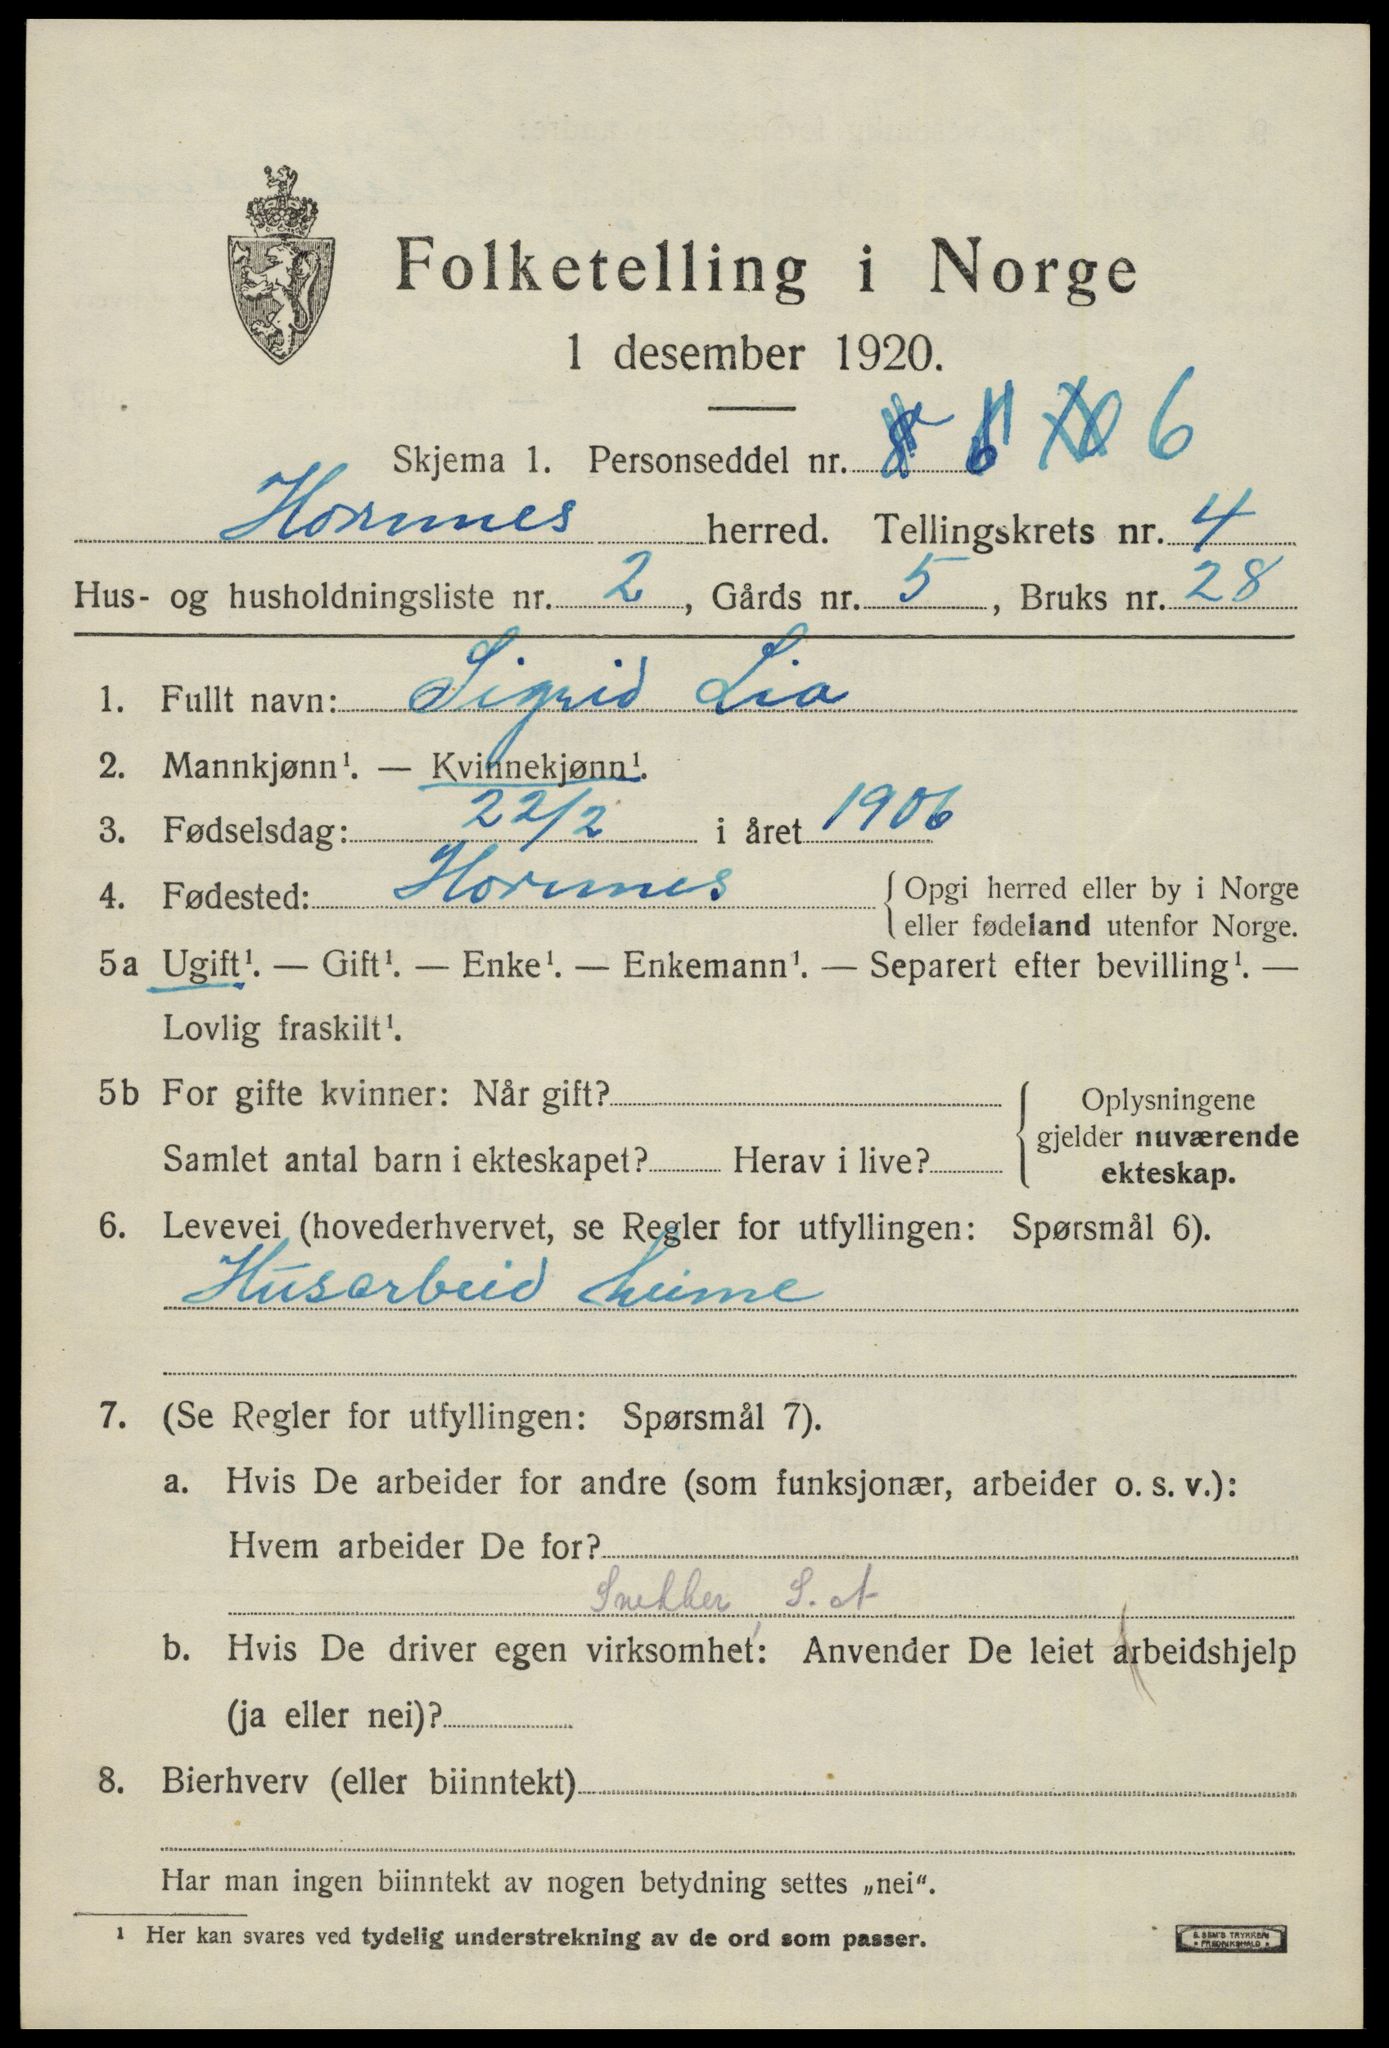 Folketelling i Norge
1 desember 1920.
Skjema 1. Personseddel nr. 6
Hornnes herred. Tellingskrets nr. 4
Hus- og husholdningsliste nr. 2, Gårds nr. 5, Bruks nr. 28
1. Fullt navn: Sigrid Lia
2. Mannkjønn¹. — Kvinnekjønn¹.
3. Fødselsdag: 22/2 i året 1906
4. Fødested: Hornnes { Opgi herred eller by i Norge
eller fødeland utenfor Norge.
5a Ugift¹. — Gift¹. — Enke¹. — Enkemann¹. — Separert efter bevilling¹. —
Lovlig fraskilt¹.
5b For gifte kvinner: Når gift?
Samlet antal barn i ekteskapet? Herav i live?
Oplysningene
gjelder nuværende
ekteskap.
6. Levevei (hovederhvervet, se Regler for utfyllingen: Spørsmål 6).
Husarbeid heime
7. (Se Regler for utfyllingen: Spørsmål 7).
a. Hvis De arbeider for andre (som funksjonær, arbeider o. s. v.):
Hvem arbeider De for?
Snekker S. st
b. Hvis De driver egen virksomhet: Anvender De leiet arbeidshjelp
(ja eller nei)?
8. Bierhverv (eller biinntekt)
Har man ingen biinntekt av nogen betydning settes „nei“.
¹ Her kan svares ved tydelig understrekning av de ord som passer.
E. SEM'S TRYKKERI
FREDRIKSHALD